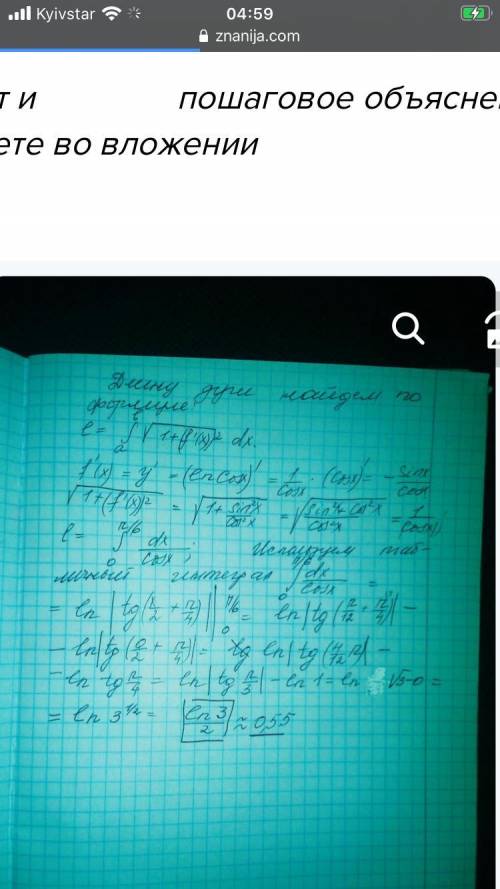 Kyivstar 04:59
znanija.com
т и пошаговое объясне
ете во вложении
Длину дуги найдем по
формуле
l = ∫ₐᵇ √(1+(f'(x))²) dx.
f'(x) = y' = (ln cosx)' = 1/cosx · (cosx)' = - sinx/cosx
√(1+(f'(x))²) = √(1+ sin²x/cos²x) = √((sin²x+cos²x)/cos²x) = 1/cosx;
l = ∫₀^(π/6) dx/cosx; Используем таб-
личный интеграл ∫₀^(π/6) dx/cosx =
= ln |tg(x/2 + π/4)| |₀^(π/6) = ln|tg(π/12 + π/4)| -
- ln|tg(0/2 + π/4)| = tg ln|tg(4/12 π)| -
- ln tg π/4 = ln|tg π/3| - ln 1 = ln √3 - 0 =
= ln 3^(1/2) = ln 3/2 ≈ 0,55